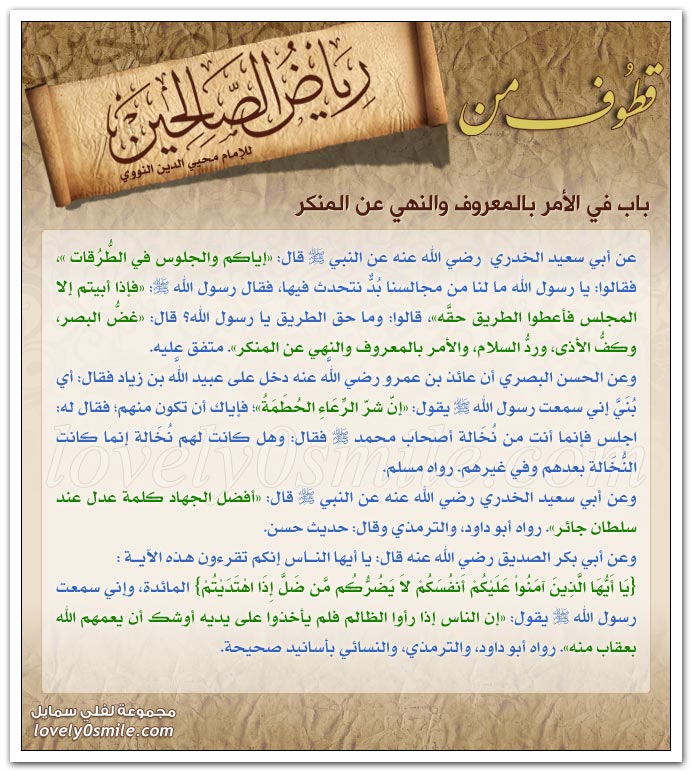 قطوف من
رياض الصالحين
للإمام محيي الدين النووي
باب في الأمر بالمعروف والنهي عن المنكر
عن أبي سعيد الخدري رضي الله عنه عن النبي ﷺ قال: «إياكم والجلوس في الطُّرُقات »،
فقالوا: يا رسول الله ما لنا من مجالسنا بُدٌّ نتحدث فيها، فقال رسول الله ﷺ: «فإذا أبيتم إلا
المجلس فأعطوا الطريق حقَّه»، قالوا: وما حق الطريق يا رسول الله؟ قال: «غضُّ البصر،
وكفُّ الأذى، وردُّ السلام، والأمر بالمعروف والنهي عن المنكر». متفق عليه.
وعن الحسن البصري أن عائذ بن عمرو رضي الله عنه دخل على عبيد الله بن زياد فقال: أي
بُنَيَّ إني سمعت رسول الله ﷺ يقول: «إنّ شرّ الرِّعَاءِ الحُطَمَةُ»؛ فإياك أن تكون منهم؛ فقال له:
اجلس فإنما أنت من نُخَالة أصحاب محمد ﷺ فقال: وهل كانت لهم نُخَالة إنما كانت
النُّخَالة بعدهم وفي غيرهم. رواه مسلم.
وعن أبي سعيد الخدري رضي الله عنه عن النبي ﷺ قال: «أفضل الجهاد كلمة عدل عند
سلطان جائر». رواه أبو داود، والترمذي وقال: حديث حسن.
وعن أبي بكر الصديق رضي الله عنه قال: يا أيها النـاس إنكم تقرءون هـذه الآيـة :
{يَا أَيُّهَا الَّذِينَ آمَنُواْ عَلَيْكُمْ أَنفُسَكُمْ لاَ يَضُرُّكُم مَّن ضَلَّ إِذَا اهْتَدَيْتُمْ} المائدة، وإني سمعت
رسول الله ﷺ يقول: «إن الناس إذا رأوا الظالم فلم يأخذوا على يديه أوشك أن يعمهم الله
بعقاب منه». رواه أبو داود، والترمذي، والنسائي بأسانيد صحيحة.
lovely0smile.com
مجموعة لفلي سمايل
lovely0smile.com